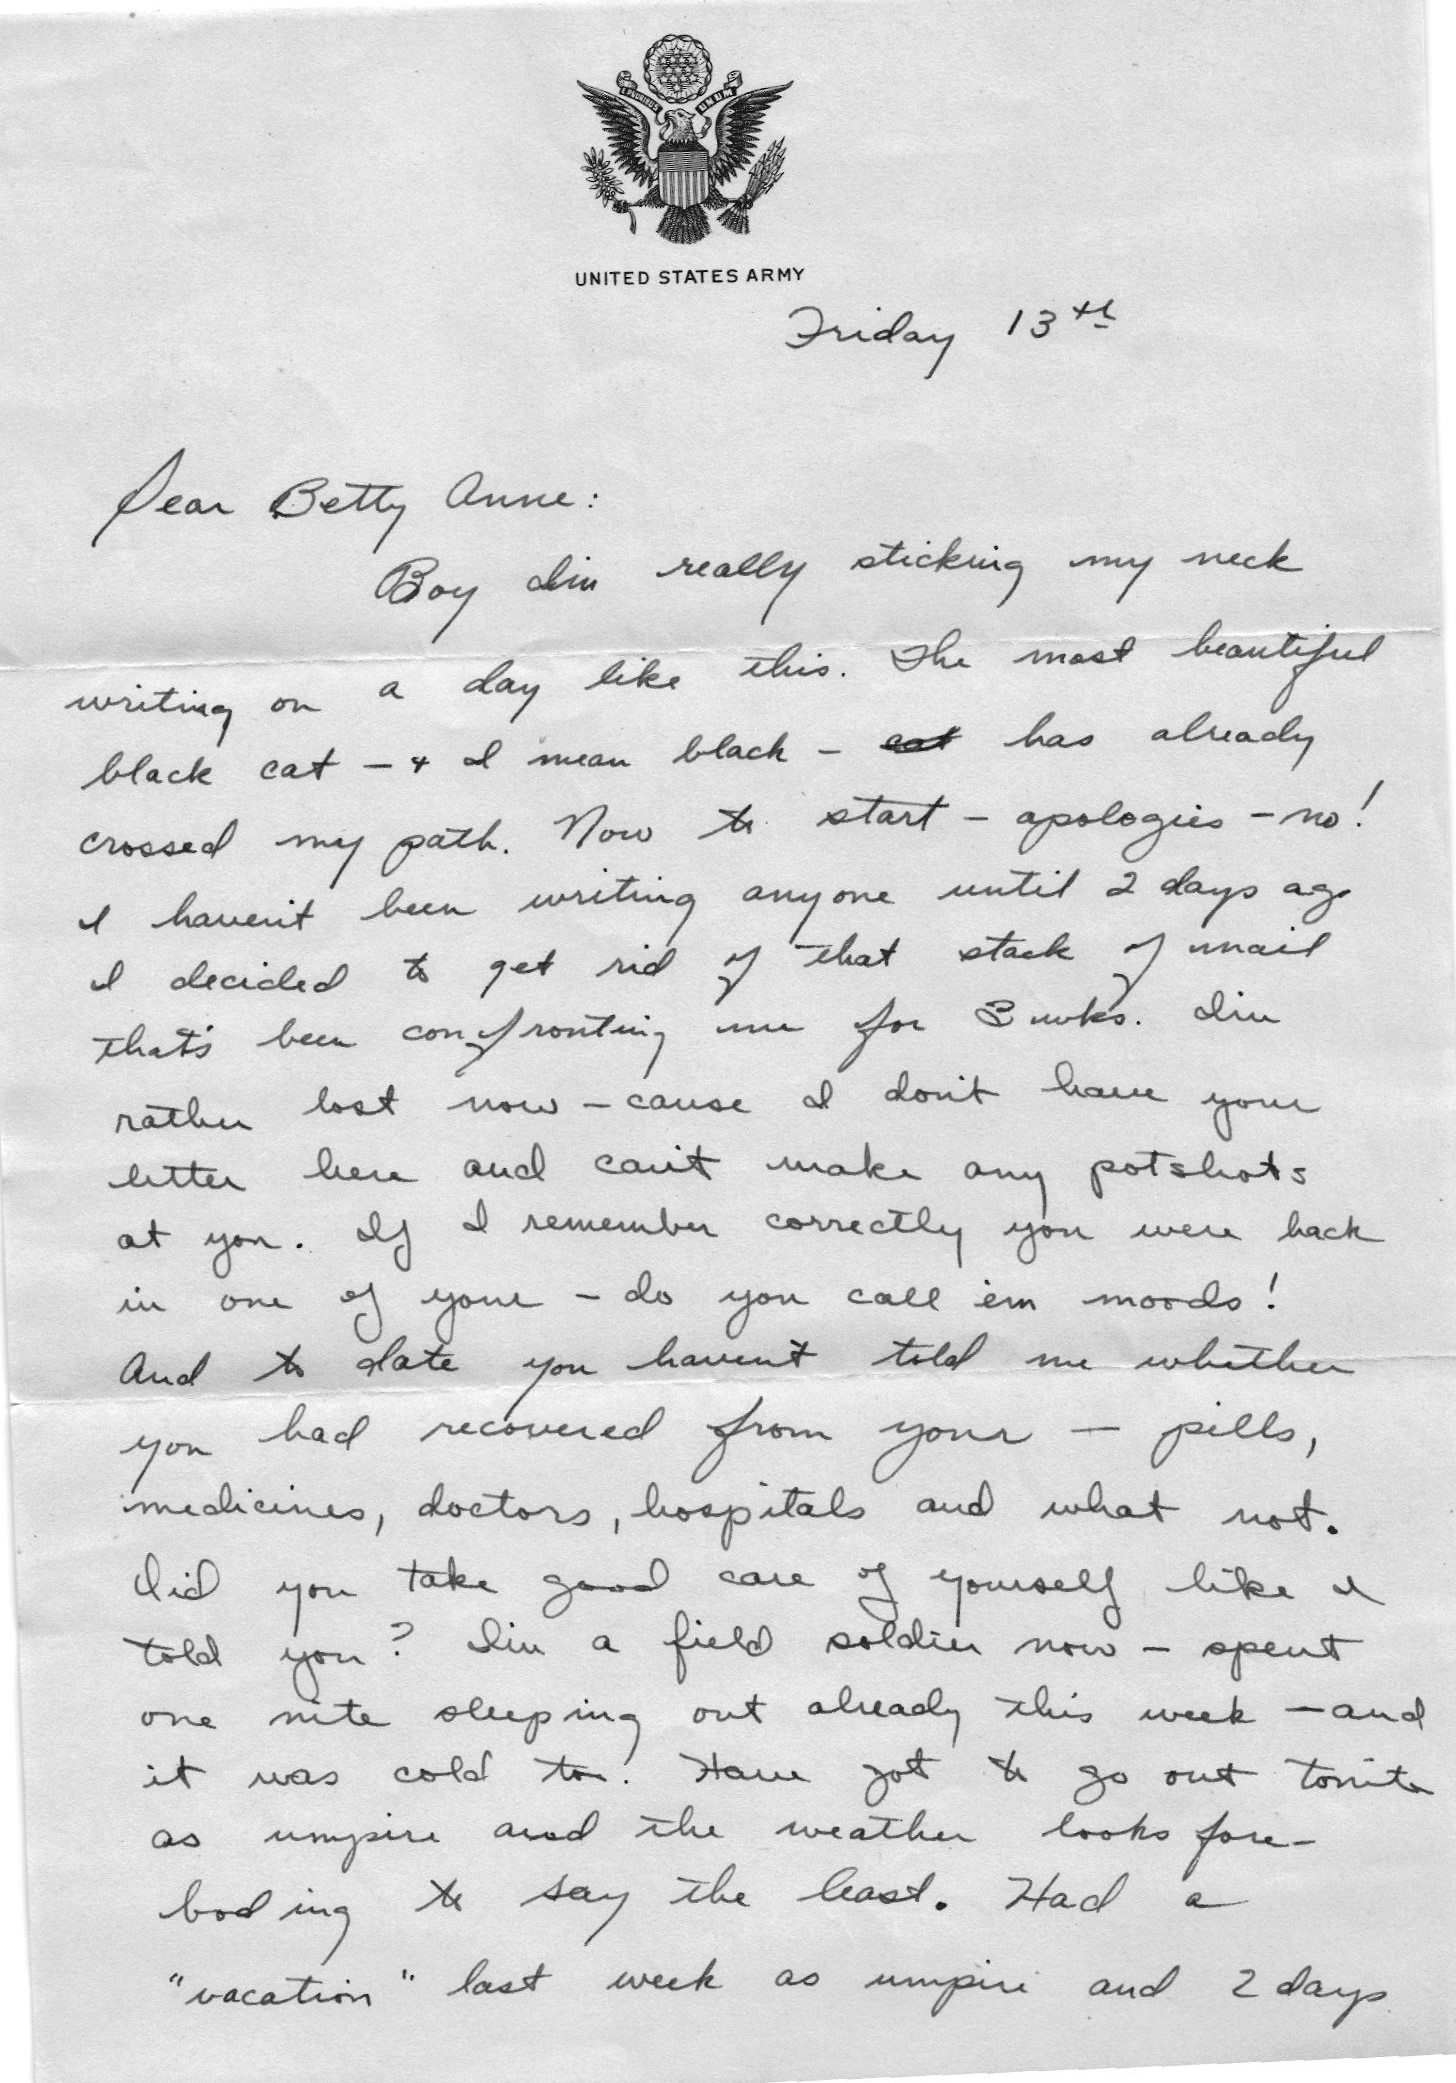 E PLURIBUS UNUM
UNITED STATES ARMY
Friday 13th
Dear Betty Anne:
Boy I'm really sticking my neck
writing on a day like this. The most beautiful
black cat - & I mean black - cat has already
crossed my path. Now to start - apologies - no!
I haven't been writing anyone until 2 days ago
I decided to get rid of that stack of mail
that's been confronting me for 3 wks. I'm
rather lost now - cause I don't have your
letter here and can't make any potshots
at you. If I remember correctly you were back
in one of your - do you call 'em moods!
And to date you havent told me whether
you had recovered from your - pills,
medicines, doctors, hospitals and what not.
Did you take good care of yourself like I
told you? I'm a field soldier now - spent
one nite sleeping out already this week - and
it was cold too. Have got to go out tonite
as umpire and the weather looks fore-
boding to say the least. Had a
"vacation" last week as umpire and 2 days